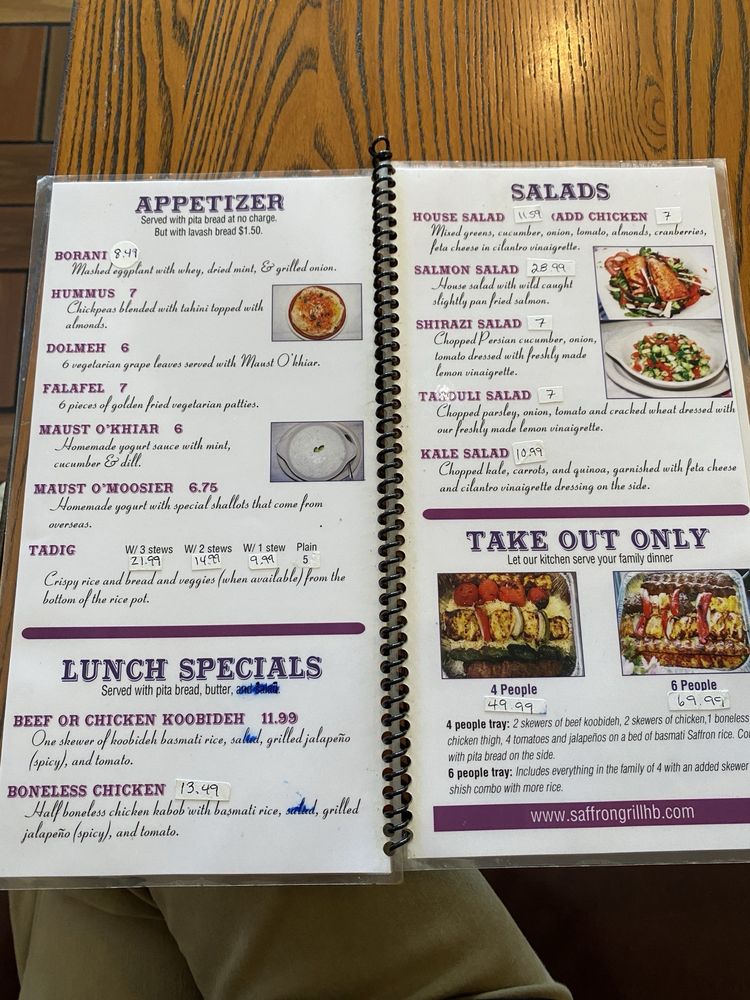 APPETIZER
Served with pita bread at no charge.
But with lavash bread $1.50.
BORANI 8.49
Mashed eggplant with whey, dried mint, & grilled onion.
HUMMUS 7
Chickpeas blended with tahini topped with
almonds.
DOLMEH 6
6 vegetarian grape leaves served with Maust O'khiar.
FALAFEL 7
6 pieces of golden fried vegetarian patties.
MAUST O'KHIAR 6
Homemade yogurt sauce with mint,
cucumber & dill.
MAUST O'MOOSIER 6.75
Homemade yogurt with special shallots that come from
overseas.
TADIG W/ 3 stews W/ 2 stews W/ 1 stew Plain
21.99 14.99 9.99 5
Crispy rice and bread and veggies (when available) from the
bottom of the rice pot.
LUNCH SPECIALS
Served with pita bread, butter, and salad.
BEEF OR CHICKEN KOOBIDEH 11.99
One skewer of koobideh basmati rice, salad, grilled jalapeño
(spicy), and tomato.
BONELESS CHICKEN 13.49
Half boneless chicken kabob with basmati rice, salad, grilled
jalapeño (spicy), and tomato.
SALADS
HOUSE SALAD 11.59 (ADD CHICKEN 7
Mixed greens, cucumber, onion, tomato, almonds, cranberries,
feta cheese in cilantro vinaigrette.
SALMON SALAD 28.99
House salad with wild caught
slightly pan fried salmon.
SHIRAZI SALAD 7
Chopped Persian cucumber, onion,
tomato dressed with freshly made
lemon vinaigrette.
TABDULI SALAD 7
Chopped parsley, onion, tomato and cracked wheat dressed with
our freshly made lemon vinaigrette.
KALE SALAD 10.99
Chopped kale, carrots, and quinoa, garnished with feta cheese
and cilantro vinaigrette dressing on the side.
TAKE OUT ONLY
Let our kitchen serve your family dinner
4 People 6 People
49.99 69.99
4 people tray: 2 skewers of beef koobideh, 2 skewers of chicken,1 boneless
chicken thigh, 4 tomatoes and jalapeños on a bed of basmati Saffron rice. Co
with pita bread on the side.
6 people tray: Includes everything in the family of 4 with an added skewer
shish combo with more rice.
www.saffrongrillhb.com